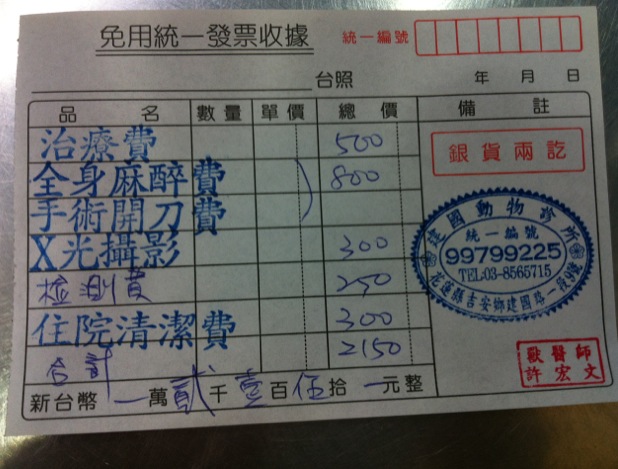 免用統一發票收據
統一編號
台照
年 月 日
品 名 數量 單價 總價 備註
治療費 500
全身麻醉費 800
手術開刀費
X光攝影 300
檢測費 250
住院清潔費 300
合計 2150
新台幣 一萬貳千壹百伍拾一元整
銀貨兩訖
建國動物診所
統一編號
99799225
TEL:03-8565715
花蓮縣吉安鄉建國路一段9號
獸醫師
許宏文